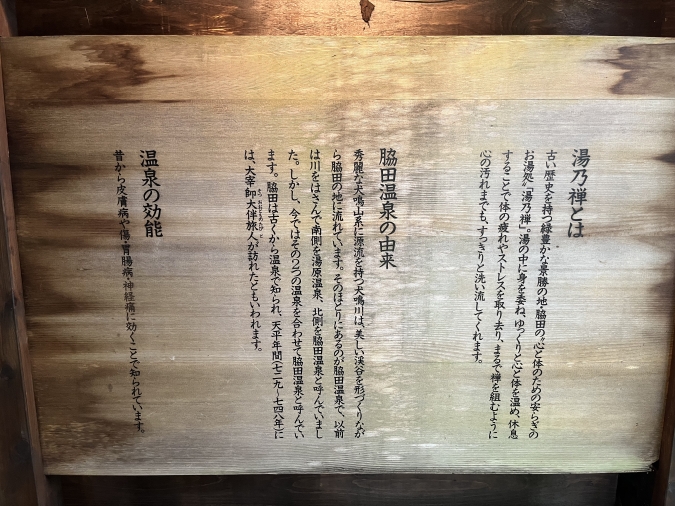 湯乃禅とは
古い歴史を持つ緑豊かな景勝の地・脇田の“心と体のための安らぎの
お湯処”「湯乃禅」。湯の中に身を委ね、ゆっくりと心と体を温め、休息
することで体の疲れやストレスを取り去り、まるで禅を組むように
心の汚れまでも、すっきりと洗い流してくれます。
脇田温泉の由来
秀麗な犬鳴山系に源流を持つ犬鳴川は、美しい渓谷を形づくりなが
ら脇田の地に流れています。そのほとりにあるのが脇田温泉で、以前
は川をはさんで南側を湯原温泉、北側を脇田温泉と呼んでいまし
た。しかし、今ではその2つの温泉を合わせて脇田温泉と呼んでい
ます。脇田は古くから温泉で知られ、天平年間(七二九〜七四八年)に
は、大宰師大伴旅人が訪れたともいわれます。
温泉の効能
昔から皮膚病や傷・胃腸病・神経痛に効くことで知られています。